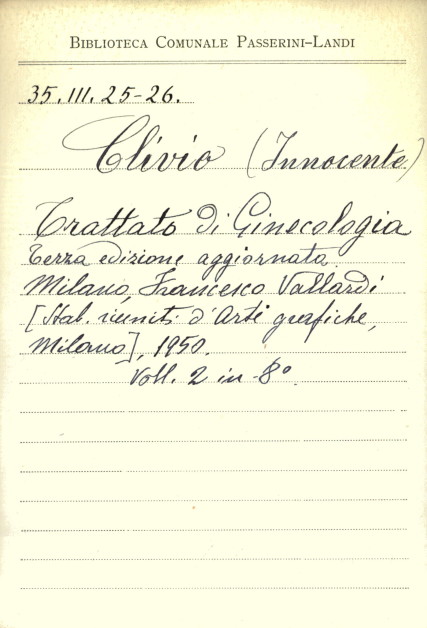 Biblioteca Comunale Passerini-Landi
35. III. 25-26.
Clivio (Innocente)
Trattato di Ginecologia
Terza edizione aggiornata
Milano, Francesco Vallardi
[Stab. riuniti d'Arti grafiche,
Milano], 1950.
Voll. 2 in-8°